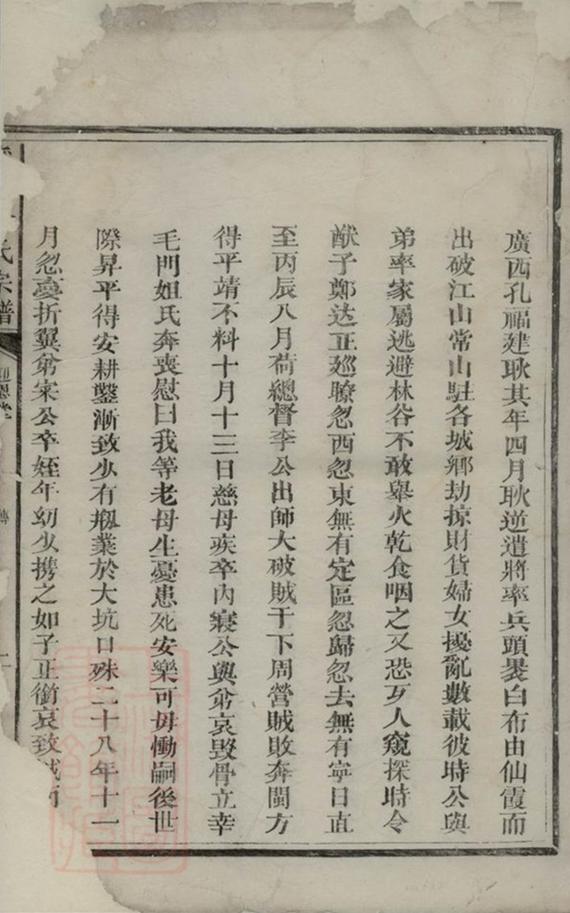 廣西孔福建耿其年四月耿逆遣將率兵頭裹白布由仙霞而
出破江山常山駐各城鄉劫掠財貨婦女擾亂數載彼時公與
弟率家屬逃避林谷不敢舉火乾食咽之又恐歹人窺探時令
猷子鄭达正廵瞭忽西忽東無有定區忽歸忽去無有寧日直
至丙辰八月荷總督李公出師大破賊于下周營賊敗奔閩方
得平靖不料十月十三日慈母疾卒内寢公與弟哀毀骨立幸
毛門姐氏奔喪慰曰我等老母生憂患死安樂可毋慟嗣後世
際昇平得安耕鑿漸致少有剏業於大坑口殊二十八年十一
月忽憂折翼弟宋公卒姪年幼少携之如子正銜哀致
氏宗譜